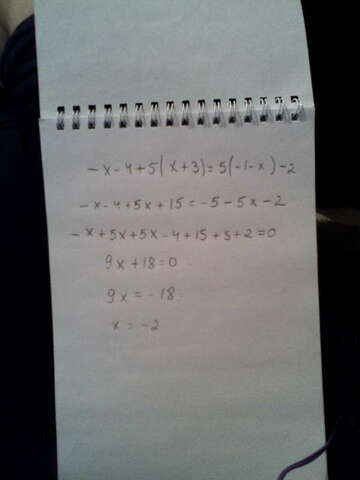 -x-4+5(x+3)=5(-1-x)-2
-x-4+5x+15=-5-5x-2
-x+5x+5x-4+15+5+2=0
9x+18=0
9x=-18
x=-2